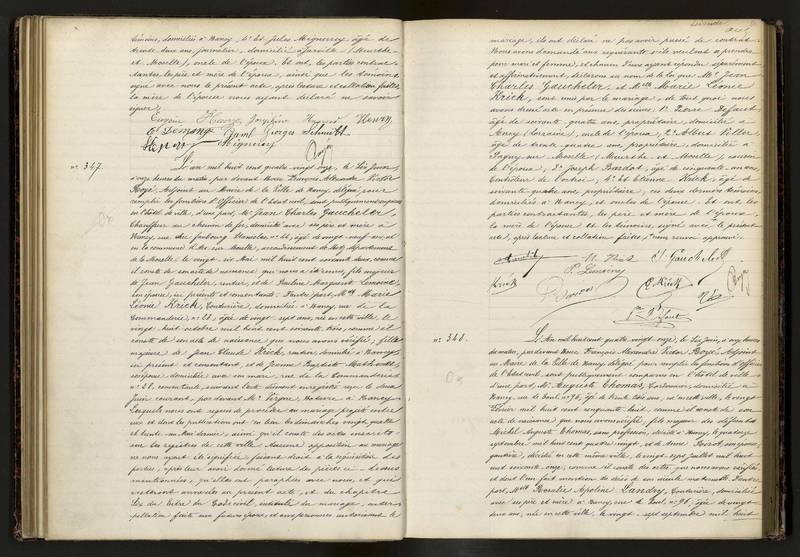 témoins, domiciliés à Nancy, 4° Et Jules Mignerey âgé de
trente deux ans, journalier, domicilié à Jarville (Meurthe-
et Moselle), oncle de l'épouse. Et ont, les parties contrac-
tantes, les père et mère de l'épouse, ainsi que les témoins
signé avec nous le présent acte, après lecture et collation faites
la mère de l'épouse nous ayant déclaré ne savoir
signer.
Eugène Henry
Demange Georges Schmitt
Henry Mignerey
n° 347.
L'an mil huit cent quatre vingt onze, le Six Juin,
à onze heures du matin, par devant Nous François Alexandre Victor
Boyé, Adjoint au Maire de la Ville de Nancy, délégué pour
remplir les fonctions d'Officier de l'Etat civil, sont publiquement comparus
en l'hôtel de ville, d'une part, Mr Jean Charles Gaucheler,
Chauffeur au chemin de fer, domicilié avec ses père et mère à
Nancy, rue du faubourg Stanislas, n° 66, âgé de vingt neuf ans, né
en la commune d'Ars sur Moselle, arrondissement de Metz, département
de la Moselle, le vingt six Mai mil huit cent soixante deux, comme
il conste de son acte de naissance que nous a été remis, fils majeur
de Jean Gaucheler, rentier, et de Pauline Marguerite
son épouse, ici présents et consentants; D'autre part, Melle Marie
Léonie Krick, Couturière, domiciliée à Nancy, rue de la
Commanderie, n° 28, âgée de vingt-sept ans, née en cette ville, le
vingt huit octobre mil huit cent soixante trois, comme il
conste de son acte de naissance que nous avons vérifié, fille
majeure de Jean Claude Krick, rentier, domicilié à Nancy,
ici présent et consentant, et de Jeanne Baptiste Mathonet,
son épouse, domiciliée avec son mari, rue de la Commanderie
n° 28, consentante, suivant l'acte dûment enregistré reçu le deux
Juin courant, par devant Me Vergne Notaire à Nancy.
Lesquels nous ont requis de procéder au mariage projeté entre
eux et dont les publications ont eu lieu les dimanches vingt quatre
et trente un Mai dernier, ainsi qu'il conste des actes inscrits
sur les registres de cette ville. Aucune opposition au mariage
ne nous ayant été signifiée faisant droit à la réquisition des
parties, après leur avoir donné lecture des pièces ci-dessus
mentionnées, qu'elles ont paraphées avec nous, et qui
resteront annexées au présent acte, et du chapitre
six du titre du Code civil, intitulé du mariage, inter-
pellation faite aux futurs époux, et aux personnes autorisant le
mariage, ils ont déclaré ne pas avoir passé de contrat.
Nous avons demandé aux requérants s'ils veulent se prendre
pour mari et femme; et chacun d'eux ayant répondu séparément
et affirmativement, déclarons au nom de la loi que Mr Jean
Charles Gaucheler, et Melle Marie Léonie
Krick, sont unis par le mariage, de tout quoi nous
avons dressé acte en présence des sieurs 1° Pierre
âgé de soixante quatre ans, propriétaire, domicilié à
(Lorraine), oncle de l'époux, 2° Albert
âgé de trente quatre ans, propriétaire, domicilié à
Pagny-sur-Moselle (Meurthe-et-Moselle), cousin
de l'époux, 3° Joseph Bardot, âgé de cinquante un ans,
Contrôleur de l'octroi, 4° Et Etienne Krick, âgé de
soixante quatre ans, propriétaire, ces deux derniers témoins,
domiciliés à Nancy, et oncles de l'épouse. Et ont, les
parties contractantes, les père et mère de l'époux,
le père de l'épouse et les témoins, signé avec le présent
acte, après lecture et collation faites.
M. Krick J. Gaucheler
Krick E. Krick
n° 348.
L'An mil huit cent quatre vingt onze, le Six Juin, à onze heures
du matin, par devant Nous François Alexandre Victor Boyé, Adjoint
au Maire de la Ville de Nancy, délégué pour remplir les fonctions d'officier
de l'Etat civil, sont publiquement comparus en l'hôtel de ville,
d'une part, Mr Auguste Thomas, Cordonnier, domicilié à
Nancy, rue St n° 78, âgé de trente trois ans, né en cette ville, le vingt
Février mil huit cent cinquante huit, comme il conste de son
acte de naissance que nous avons vérifié, fils majeur des défunts
Michel Auguste Thomas, sans profession, décédé à Nancy, le
septembre mil huit cent quatre vingt, et de Anne son épouse,
gantière, décédée en cette même ville, le vingt sept Juillet mil huit
cent soixante onze; comme il conste des actes que nous avons vérifiés
et dont l'un fait mention du décès de son aïeule maternelle. D'autre
part, Melle Rosalie Apoline Landry, Couturière, domiciliée
avec ses père et mère à Nancy, rue St n° 98, âgée de vingt-
deux ans, née en cette ville, le vingt-sept septembre mil huit